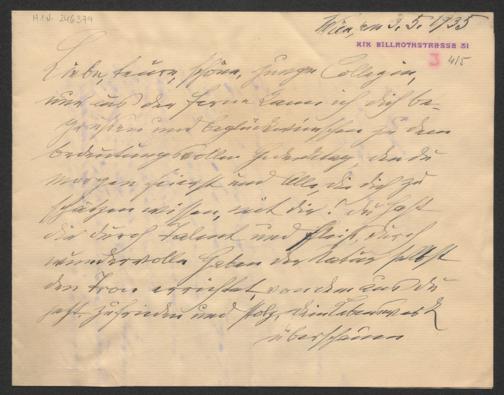 H.I.N. 246374
Wien, den 3. 5. 1935
XIX BILLROTHSTRASSE 31
3 4/5
Liebe, teure, schöne, junge Collegin,
nur aus der Ferne kann ich dich be-
grüssen und beglückwünschen zu dem
bedeutungsvollen Gedenktag, den du
morgen feierst und Alle, die dich zu
schätzen wissen, mit dir! Du hast
dir durch Talent und Fleiß, durch
wundervolle Gaben der Natur selbst
den Tron errichtet, von dem aus du
hast zufrieden und stolz, dein Lebenswerk
überschauen